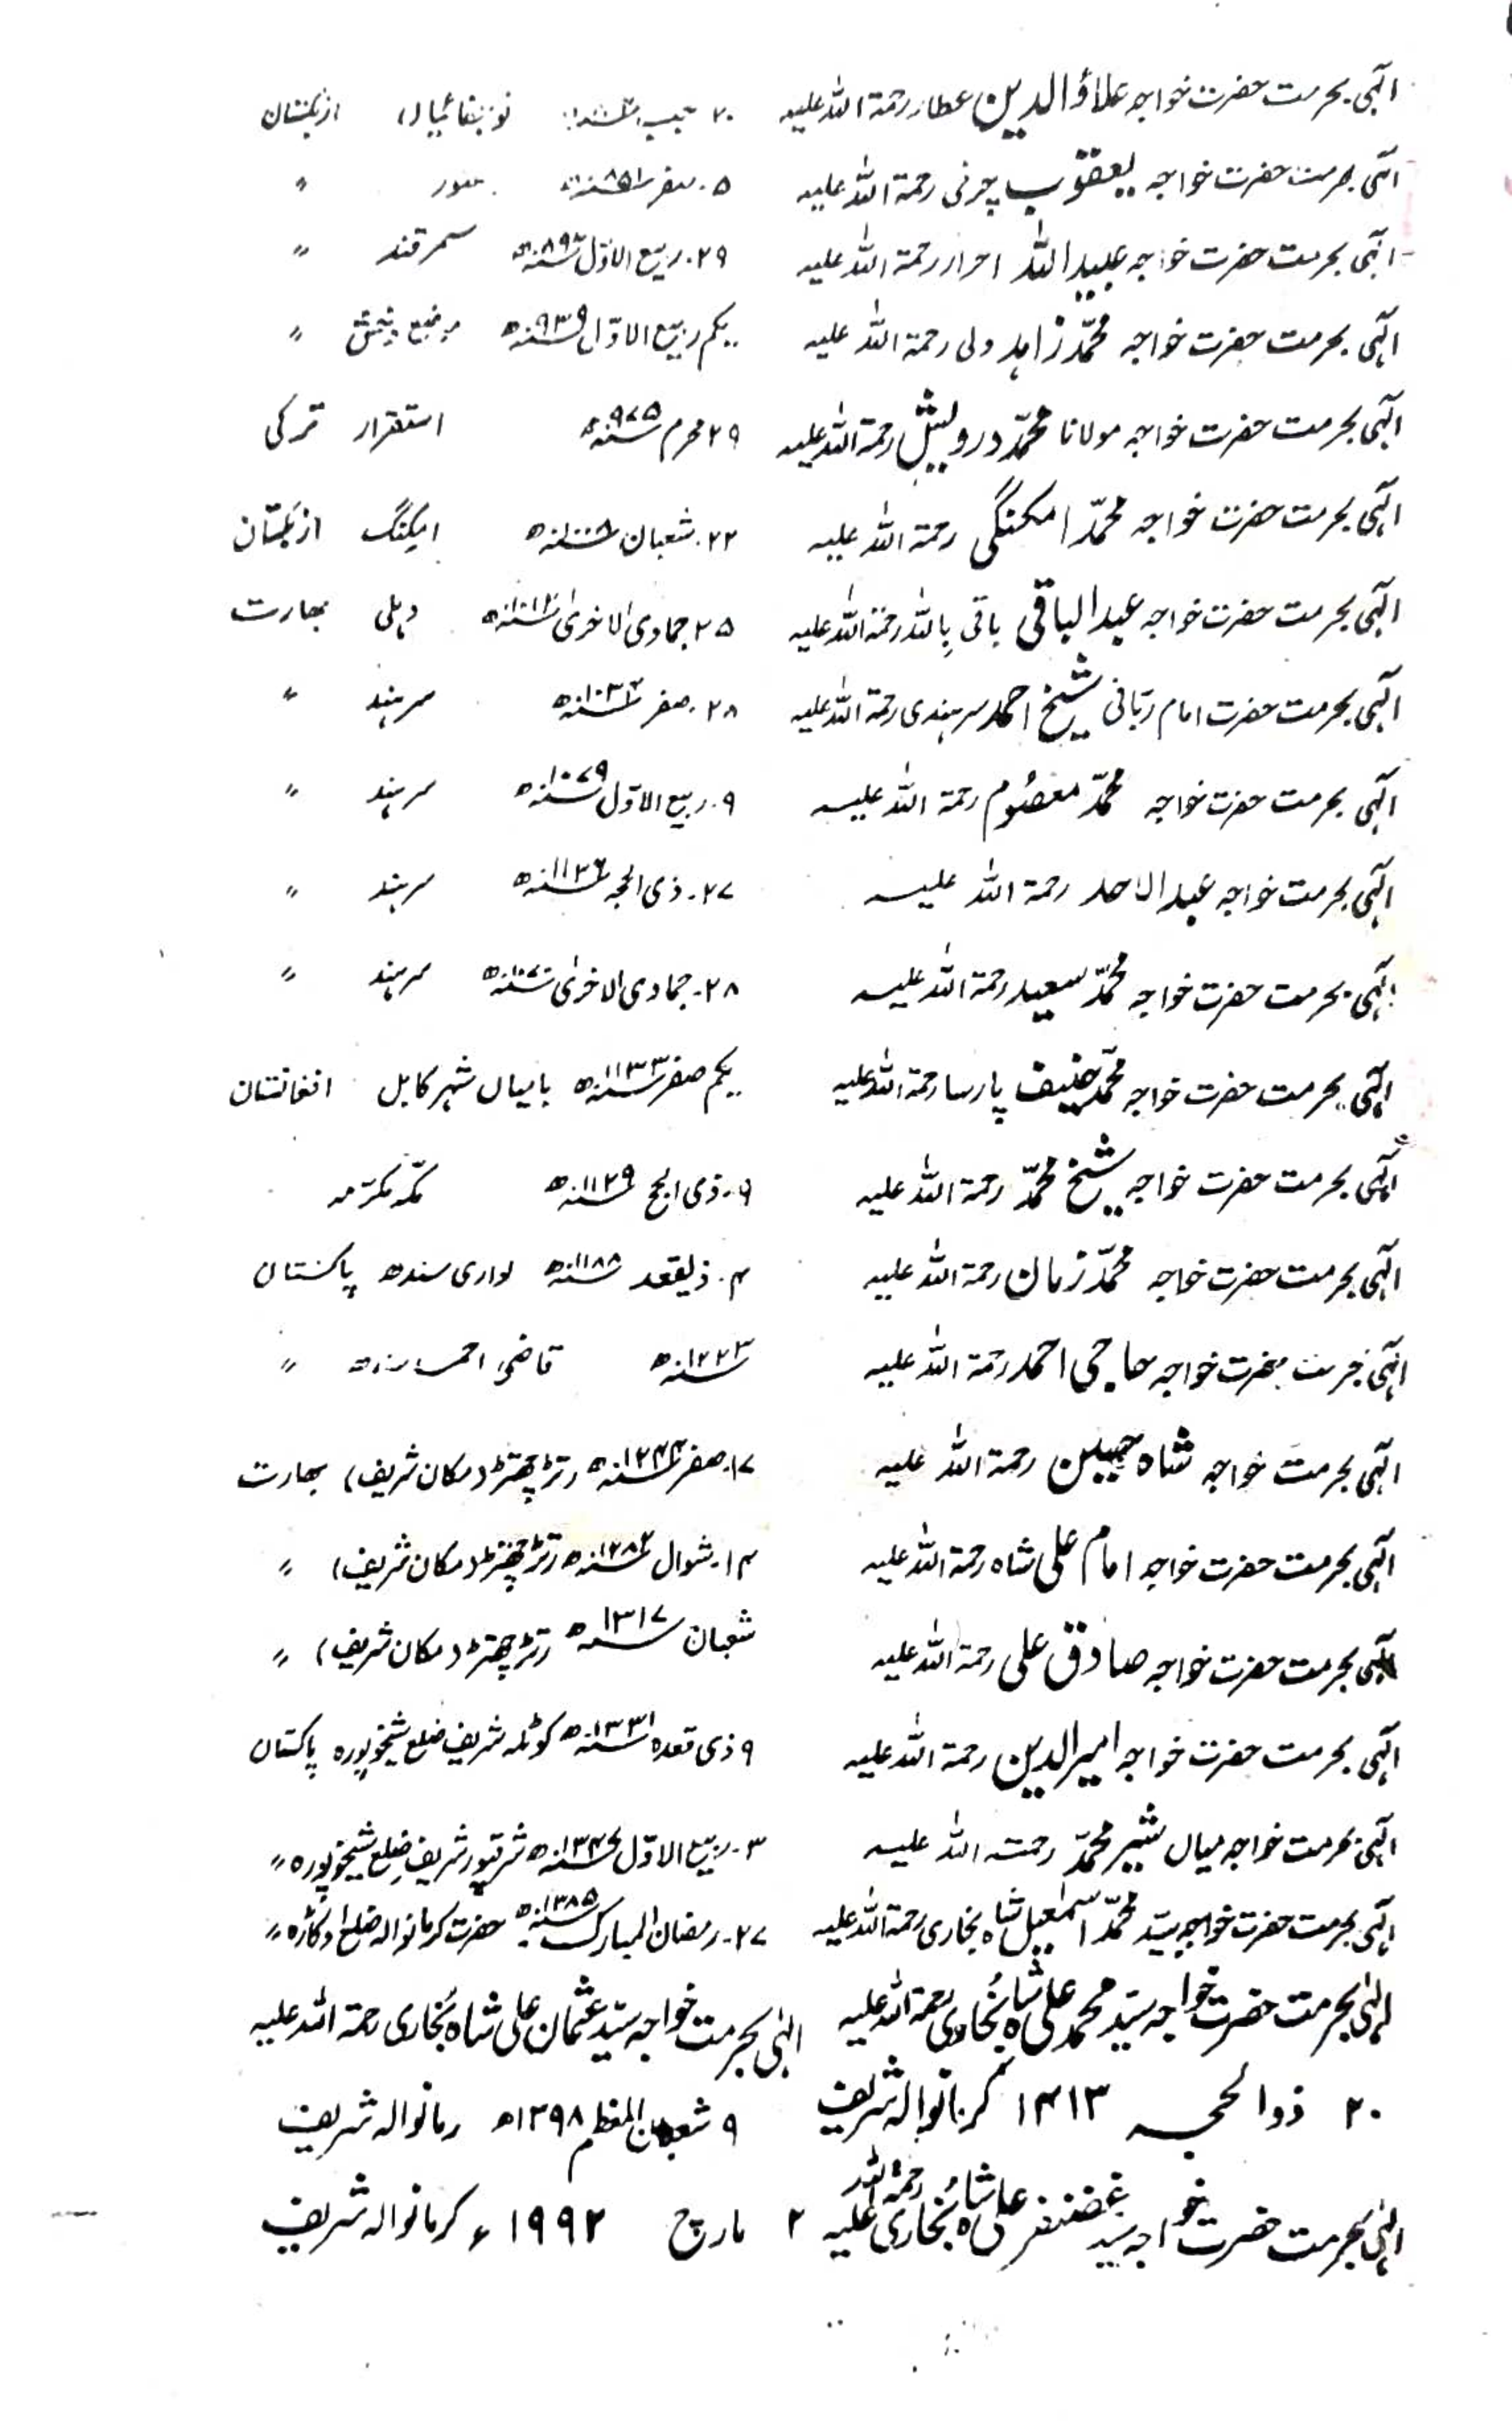 الٰہی بحرمت حضرت خواجہ علاؤالدین عطار رحمۃ اللہ علیہ ۲۰ ازبکستان
الٰہی بحرمت حضرت خواجہ یعقوب چرخی رحمۃ اللہ علیہ ۵۔صفر ۸۵۱ھ "
الٰہی بحرمت حضرت خواجہ عبیداللہ احرار رحمۃ اللہ علیہ ۲۹۔ربیع الاوّل سمرقند "
الٰہی بحرمت حضرت خواجہ محمّد زاہد ولی رحمۃ اللہ علیہ یکم ربیع الاوّل ۹۳۶ھ "
الٰہی بحرمت حضرت خواجہ مولانا محمّد درویش رحمۃ اللہ علیہ ۲۹ محرم ۹۷۵ھ استقرار ترکی
الٰہی بحرمت حضرت خواجہ محمّد امکنگی رحمۃ اللہ علیہ ۲۲۔شعبان ۱۰۰۸ھ ایکنگ ازبکستان
الٰہی بحرمت حضرت خواجہ عبدالباقی باقی بِاللہ رحمۃ اللہ علیہ ۲۵ جمادی الاخریٰ ۱۰۱۲ھ دہلی بھارت
الٰہی بحرمت حضرت امام ربّانی شیخ احمد سرہندی رحمۃ اللہ علیہ ۲۸۔صفر ۱۰۳۴ھ سرہند "
الٰہی بحرمت حضرت خواجہ محمّد معصُوم رحمۃ اللہ علیہ ۹۔ربیع الاوّل ۱۰۷۹ھ سرہند "
الٰہی بحرمت خواجہ عبدالاحد رحمۃ اللہ علیہ ۲۷۔ذی الحجہ ۱۱۲۶ھ سرہند "
الٰہی بحرمت حضرت خواجہ محمّد سعید رحمۃ اللہ علیہ ۲۸۔جمادی الاخریٰ ۱۰۷۰ھ سرہند "
الٰہی بحرمت حضرت خواجہ محمّد حنیف پارسا رحمۃ اللہ علیہ یکم صفر ۱۱۳۳ھ بامیاں شہر کابل افغانستان
الٰہی بحرمت حضرت خواجہ شیخ محمّد رحمۃ اللہ علیہ ۹۔ذی الحج ۱۱۲۹ھ مکّہ مکرّمہ
الٰہی بحرمت حضرت خواجہ محمّد زمان رحمۃ اللہ علیہ ۴۔ذیلقعد ۱۱۸۸ھ لواری سندھ پاکستان
الٰہی بحرمت حضرت خواجہ حاجی احمد رحمۃ اللہ علیہ ۱۲۲۳ھ قاضی احمد سندھ "
الٰہی بحرمت خواجہ شاہ حسین رحمۃ اللہ علیہ ۱۷۔صفر ۱۲۴۴ھ رتڑ چھتڑ (مکان شریف) بھارت
الٰہی بحرمت حضرت خواجہ امام علی شاہ رحمۃ اللہ علیہ ۱۴۔شوال ۱۲۸۲ھ رتڑ چھتڑ (مکان شریف) "
الٰہی بحرمت حضرت خواجہ صادق علی رحمۃ اللہ علیہ شعبان ۱۳۱۷ھ رتڑ چھتڑ (مکان شریف) "
الٰہی بحرمت حضرت خواجہ امیرالدین رحمۃ اللہ علیہ ۹ ذی قعدہ ۱۳۳۱ھ کوٹلہ شریف ضلع شیخوپورہ پاکستان
الٰہی بحرمت خواجہ میاں شیر محمّد رحمتہ اللہ علیہ ۳۔ربیع الاوّل ۱۳۴۷ھ شرقپور شریف ضلع شیخوپورہ "
الٰہی بحرمت حضرت خواجہ سیّد محمّد اسمٰعیل شاہ بخاری رحمۃ اللہ علیہ ۲۷۔رمضان المبارک ۱۳۸۵ھ حضرت کرمانوالہ ضلع اوکاڑہ "
الٰہی بحرمت حضرت خواجہ سیّد محمد علی شاہ بُخاری رحمۃ اللہ علیہ الٰہی بحرمت خواجہ سیّد عثمان علی شاہ بُخاری رحمۃ اللہ علیہ
۲۰ ذوالحجہ ۱۴۱۳ کرمانوالہ شریف ۹ شعبان المعظم ۱۳۹۸ھ رمانوالہ شریف
الٰہی بحرمت حضرت خواجہ سید غضنفر علی شاہ بُخاری رحمۃ اللہ علیہ ۲ مارچ ۱۹۹۲ء کرمانوالہ شریف